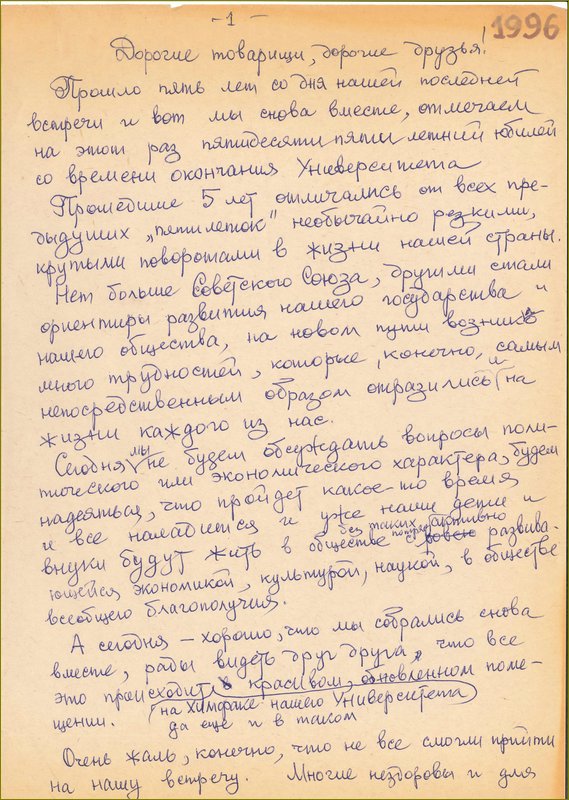 - 1 -
1996
Дорогие товарищи, дорогие друзья!
Прошло пять лет со дня нашей последней
встречи и вот мы снова вместе, отмечаем
на этот раз пятидесятипятилетний юбилей
со времени окончания Университета
Прошедшие 5 лет отличались от всех пре-
дыдущих „пятилеток" необычайно резкими,
крутыми поворотами в жизни нашей страны.
Нет больше Советского Союза, другими стали
ориентиры развития нашего государства и
нашего общества, на новом пути возникло
много трудностей, которые, конечно, самым
непосредственным образом отразились и на
жизни каждого из нас.
Сегодня мы не будем обсуждать вопросы поли-
тического или экономического характера, будем
надеяться, что пройдет какое-то время
и все наладится и уже наши дети и
внуки будут жить в обществе без таких развива-
ющейся экономикой, культурой, наукой, в обществе
всеобщего благополучия.
А сегодня – хорошо, что мы собрались снова
вместе, рады видеть друг друга, что все
это происходит в красивом, обновленном поме-
щении. (на Химфаке нашего Университета)
да еще и в таком
Очень жаль, конечно, что не все смогли прийти
на нашу встречу. Многие нездоровы и для